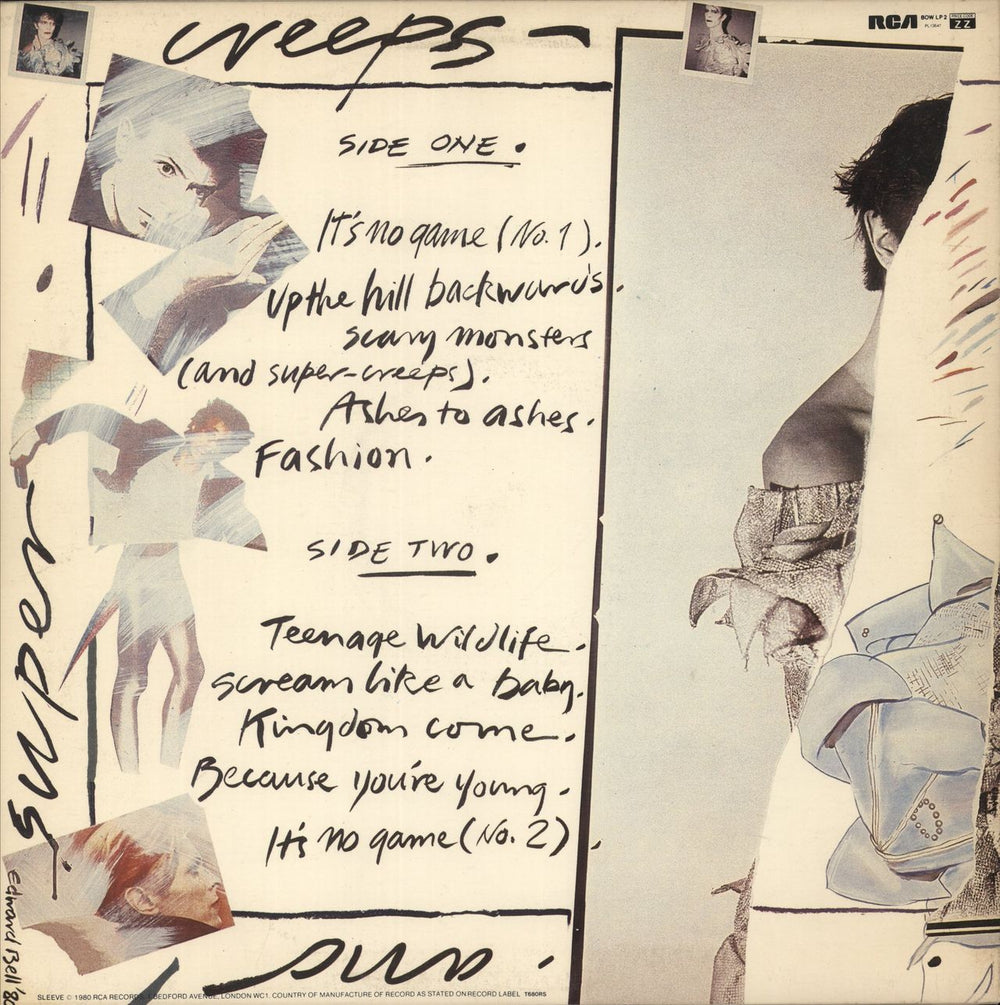 creeps –
RCA BOW LP 2
PL 13647
ZZ
SIDE ONE .
It's no game (No. 1).
up the hill backwards.
scary monsters
(and super-creeps).
Ashes to ashes.
Fashion.
SIDE TWO .
Teenage Wildlife.
scream like a baby.
Kingdom come.
Because you're young.
It's no game (No. 2).
super
Edward Bell '80
SLEEVE © 1980 RCA RECORDS, 1 BEDFORD AVENUE, LONDON WC1. COUNTRY OF MANUFACTURE OF RECORD AS STATED ON RECORD LABEL T680RS